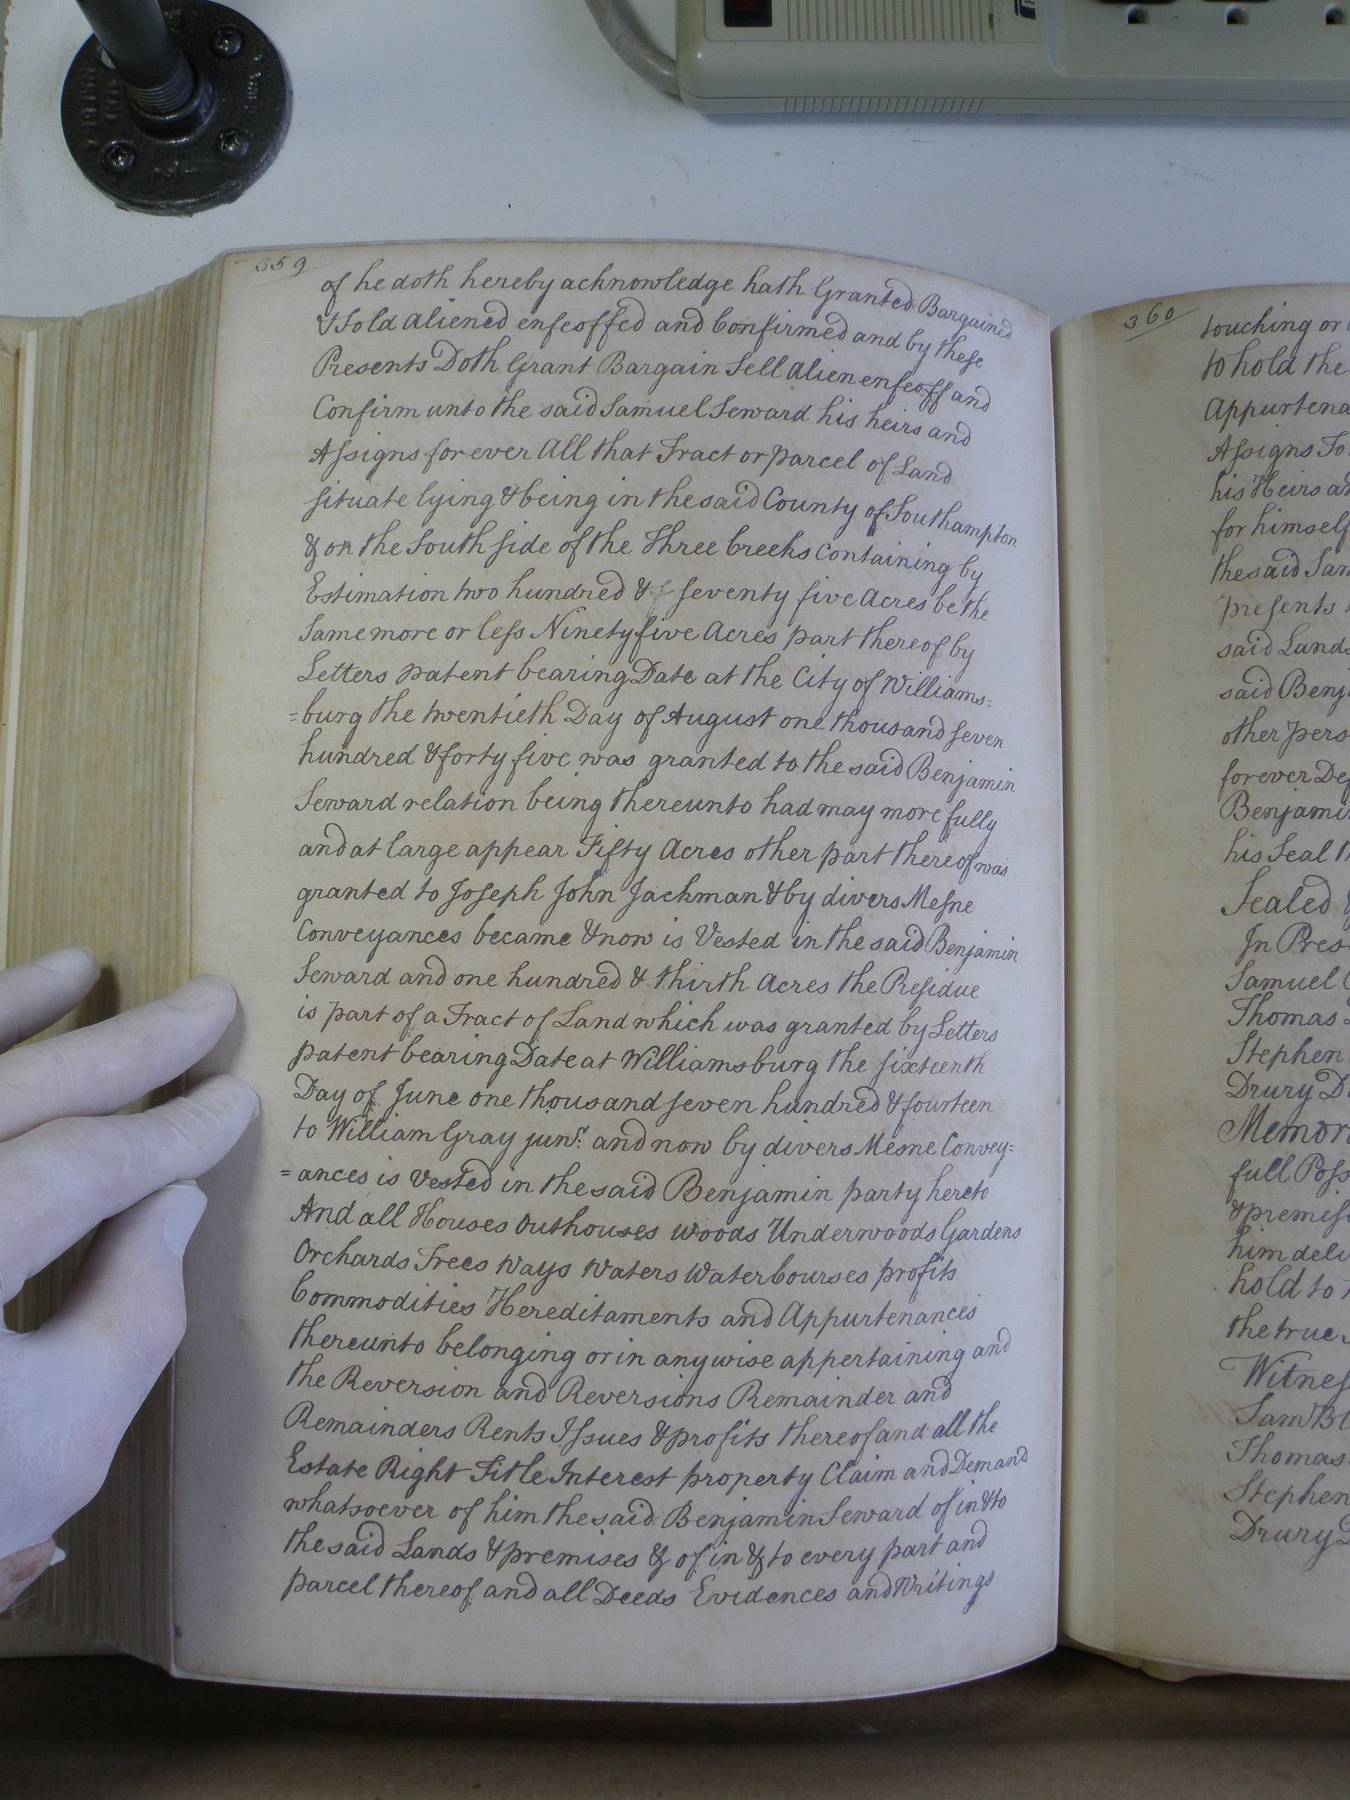 359
of he doth hereby acknowledge hath Granted Bargained
& Sold aliened enfeoffed and Confirmed and by these
Presents Doth Grant Bargain Sell alien enfeoff and
Confirm unto the said Samuel Seward his heirs and
Assigns forever All that Tract or parcel of Land
situate lying & being in the said County of Southampton
& on the South side of the Three Creeks Containing by
Estimation two hundred & seventy five Acres be the
Same more or less Ninety five Acres part thereof by
Letters patent bearing Date at the City of Williams=
=burg the twentieth Day of August one thousand seven
hundred & forty five was granted to the said Benjamin
Seward relation being thereunto had may more fully
and at large appear Fifty Acres other part thereof was
granted to Joseph John Jackman & by divers Mesne
Conveyances became & now is Vested in the said Benjamin
Seward and one hundred & thirth Acres the Residue
is part of a Tract of Land which was granted by Letters
patent bearing Date at Williamsburg the sixteenth
Day of June one thousand seven hundred & fourteen
to William Gray junr. and now by divers Mesne Convey=
=ances is Vested in the said Benjamin party hereto
And all Houses Outhouses woods Underwoods Gardens
Orchards Trees Ways Waters Watercourses profits
Commodities Hereditaments and Appurtenances
thereunto belonging or in anywise appertaining and
the Reversion and Reversions Remainder and
Remainders Rents Issues & profits thereof and all the
Estate Right Title Interest property Claim and Demand
whatsoever of him the said Benjamin Seward of in & to
the said Lands & premises & of in & to every part and
parcel thereof and all Deeds Evidences and Writings
360
touching or
to hold the
Appurtena
Assigns To
his Heirs an
for himself
the said Sam
presents
said Lands
said Benj
other pers
forever De
Benjamin
his Seal th
Sealed &
In Pres
Samuel
Thomas
Stephen
Drury D
Memor
full Poss
& premis
him deli
hold to
the true
Witnes
Saml Bl
Thomas
Stephen
Drury D